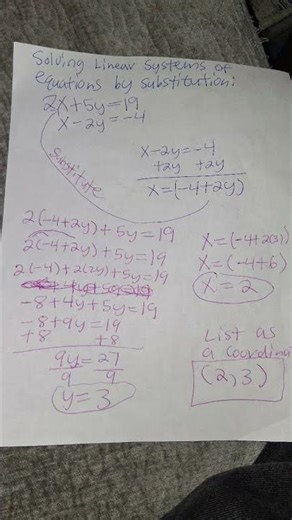 Solving Linear Systems of
equations by substitution:
2x+5y=19
x-2y=-4
Substitute
x-2y=-4
+2y +2y
x=(-4+2y)
2(-4+2y)+5y=19
2(-4+2y)+5y=19
2(-4)+2(2y)+5y=19
-8+4y+5y=19
-8+9y=19
+8 +8
9y=27
9 9
y=3
x=(-4+2(3))
x=(-4+6)
x=2
List as
a coordina
(2,3)